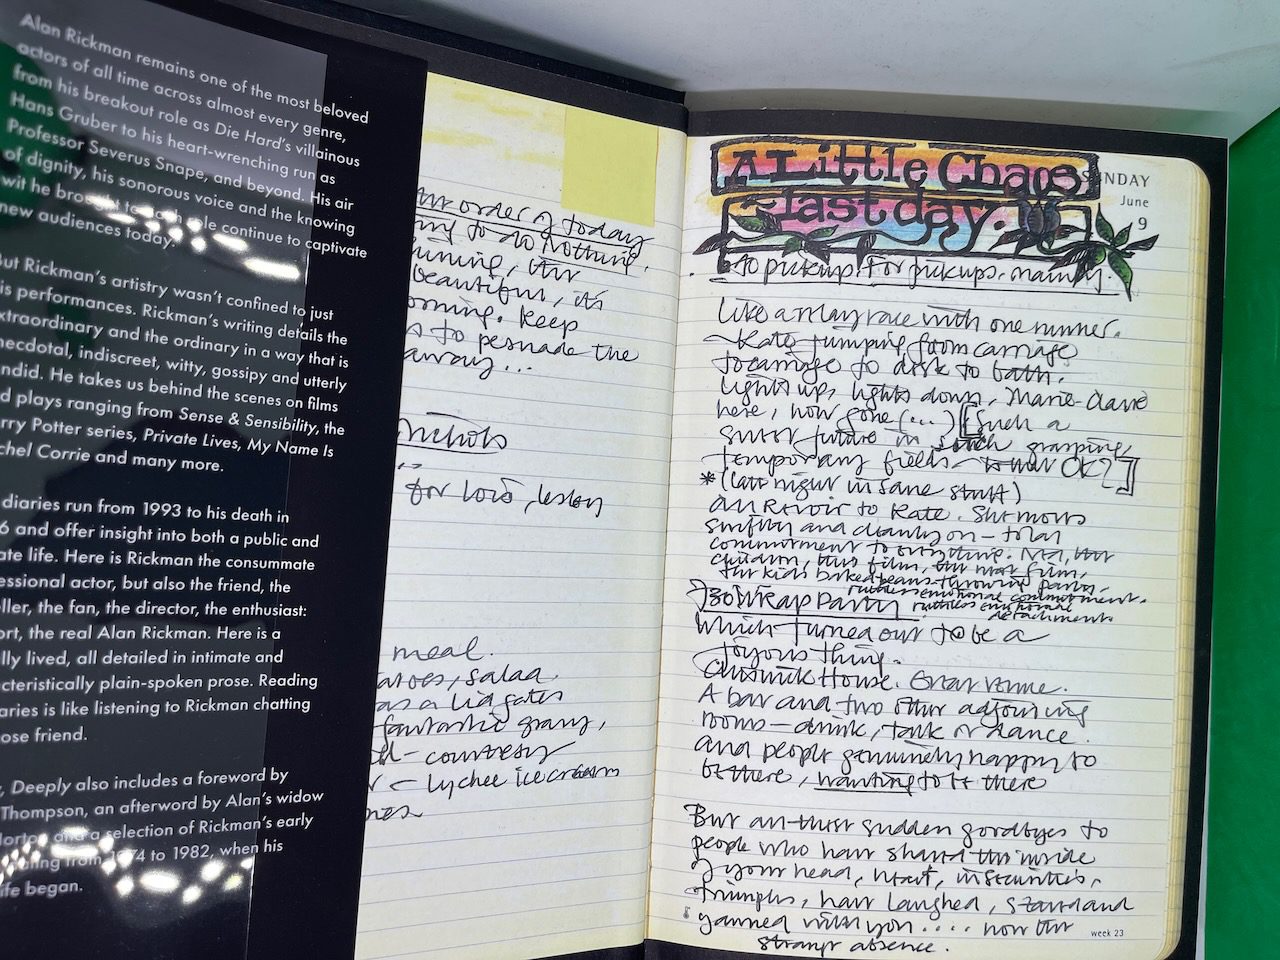 Alan Rickman remains one of the most beloved
actors of all time across almost every genre,
from his breakout role as Die Hard's villainous
Hans Gruber to his heart-wrenching run as
Professor Severus Snape, and beyond. His air
of dignity, his sonorous voice and the knowing
wit he brought to each role continue to captivate
new audiences today.
But Rickman's artistry wasn't confined to just
is performances. Rickman's writing details the
xtraordinary and the ordinary in a way that is
necdotal, indiscreet, witty, gossipy and utterly
ndid. He takes us behind the scenes on films
d plays ranging from Sense & Sensibility, the
rry Potter series, Private Lives, My Name Is
chel Corrie and many more.
diaries run from 1993 to his death in
6 and offer insight into both a public and
ate life. Here is Rickman the consummate
essional actor, but also the friend, the
ller, the fan, the director, the enthusiast:
ort, the real Alan Rickman. Here is a
lly lived, all detailed in intimate and
cteristically plain-spoken prose. Reading
aries is like listening to Rickman chatting
ose friend.
, Deeply also includes a foreword by
Thompson, an afterword by Alan's widow
Horton and a selection of Rickman's early
from 1974 to 1982, when his
ife began.
order of today
to do nothing.
the
beautiful, it's
orning. Keep
to persuade the
away...
Nichols
for Lois, Lesley
meal.
atoes, salad
as a Lidgates
fantastic gravy,
- courtesy
- Lychee ice cream
A Little Chaos
SUNDAY
~last day.
June
9
to pickup. For pickups, mainly.
Like a relay race with one runner.
Kate jumping from carriage
to carriage to desk to bath.
Lights up, lights down, Marie-Claire
here, now gone (...) [Such a
future in such grasping,
temporary fields - is that OK?]
*(last night insane stuff)
Au Revoir to Kate. She moves
swiftly and cleanly on - total
commitment to everything. Ned, the
children, this film, the next film,
the kids baked beans-throwing party.
ruthless emotional commitment.
ruthless emotional
detachment.
7.30 Wrap Party
Which turned out to be a
joyous thing.
Chiswick House. Great venue.
A bar and two other adjoining
rooms - drink, talk or dance.
and people genuinely happy to
be there, wanting to be there
But an-other sudden goodbyes to
people who have shared the inside
of your head, heart, insecurities,
triumphs, have laughed, stared and
yawned with you .... now the
strange absence.
week 23